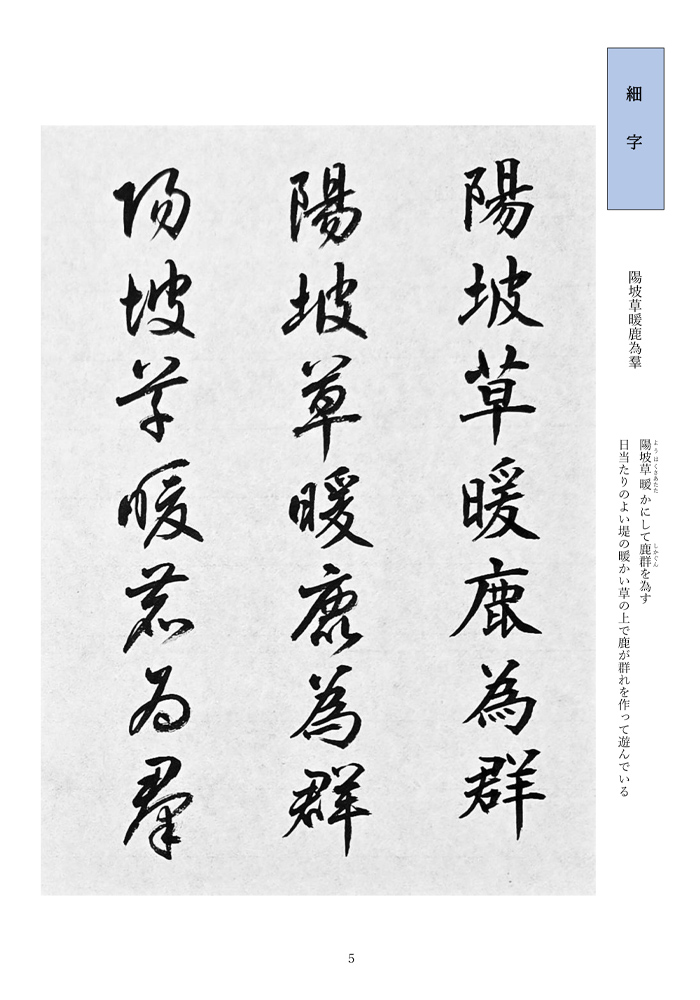 細字
陽坡草暖鹿為羣
陽坡草暖かにして鹿群を為す
ようはくさあたた
しかぐん
日当たりのよい堤の暖かい草の上で鹿が群れを作って遊んでいる
陽坡草暖鹿為群
陽坡草暖鹿為群
陽坡草暖鹿為羣
5